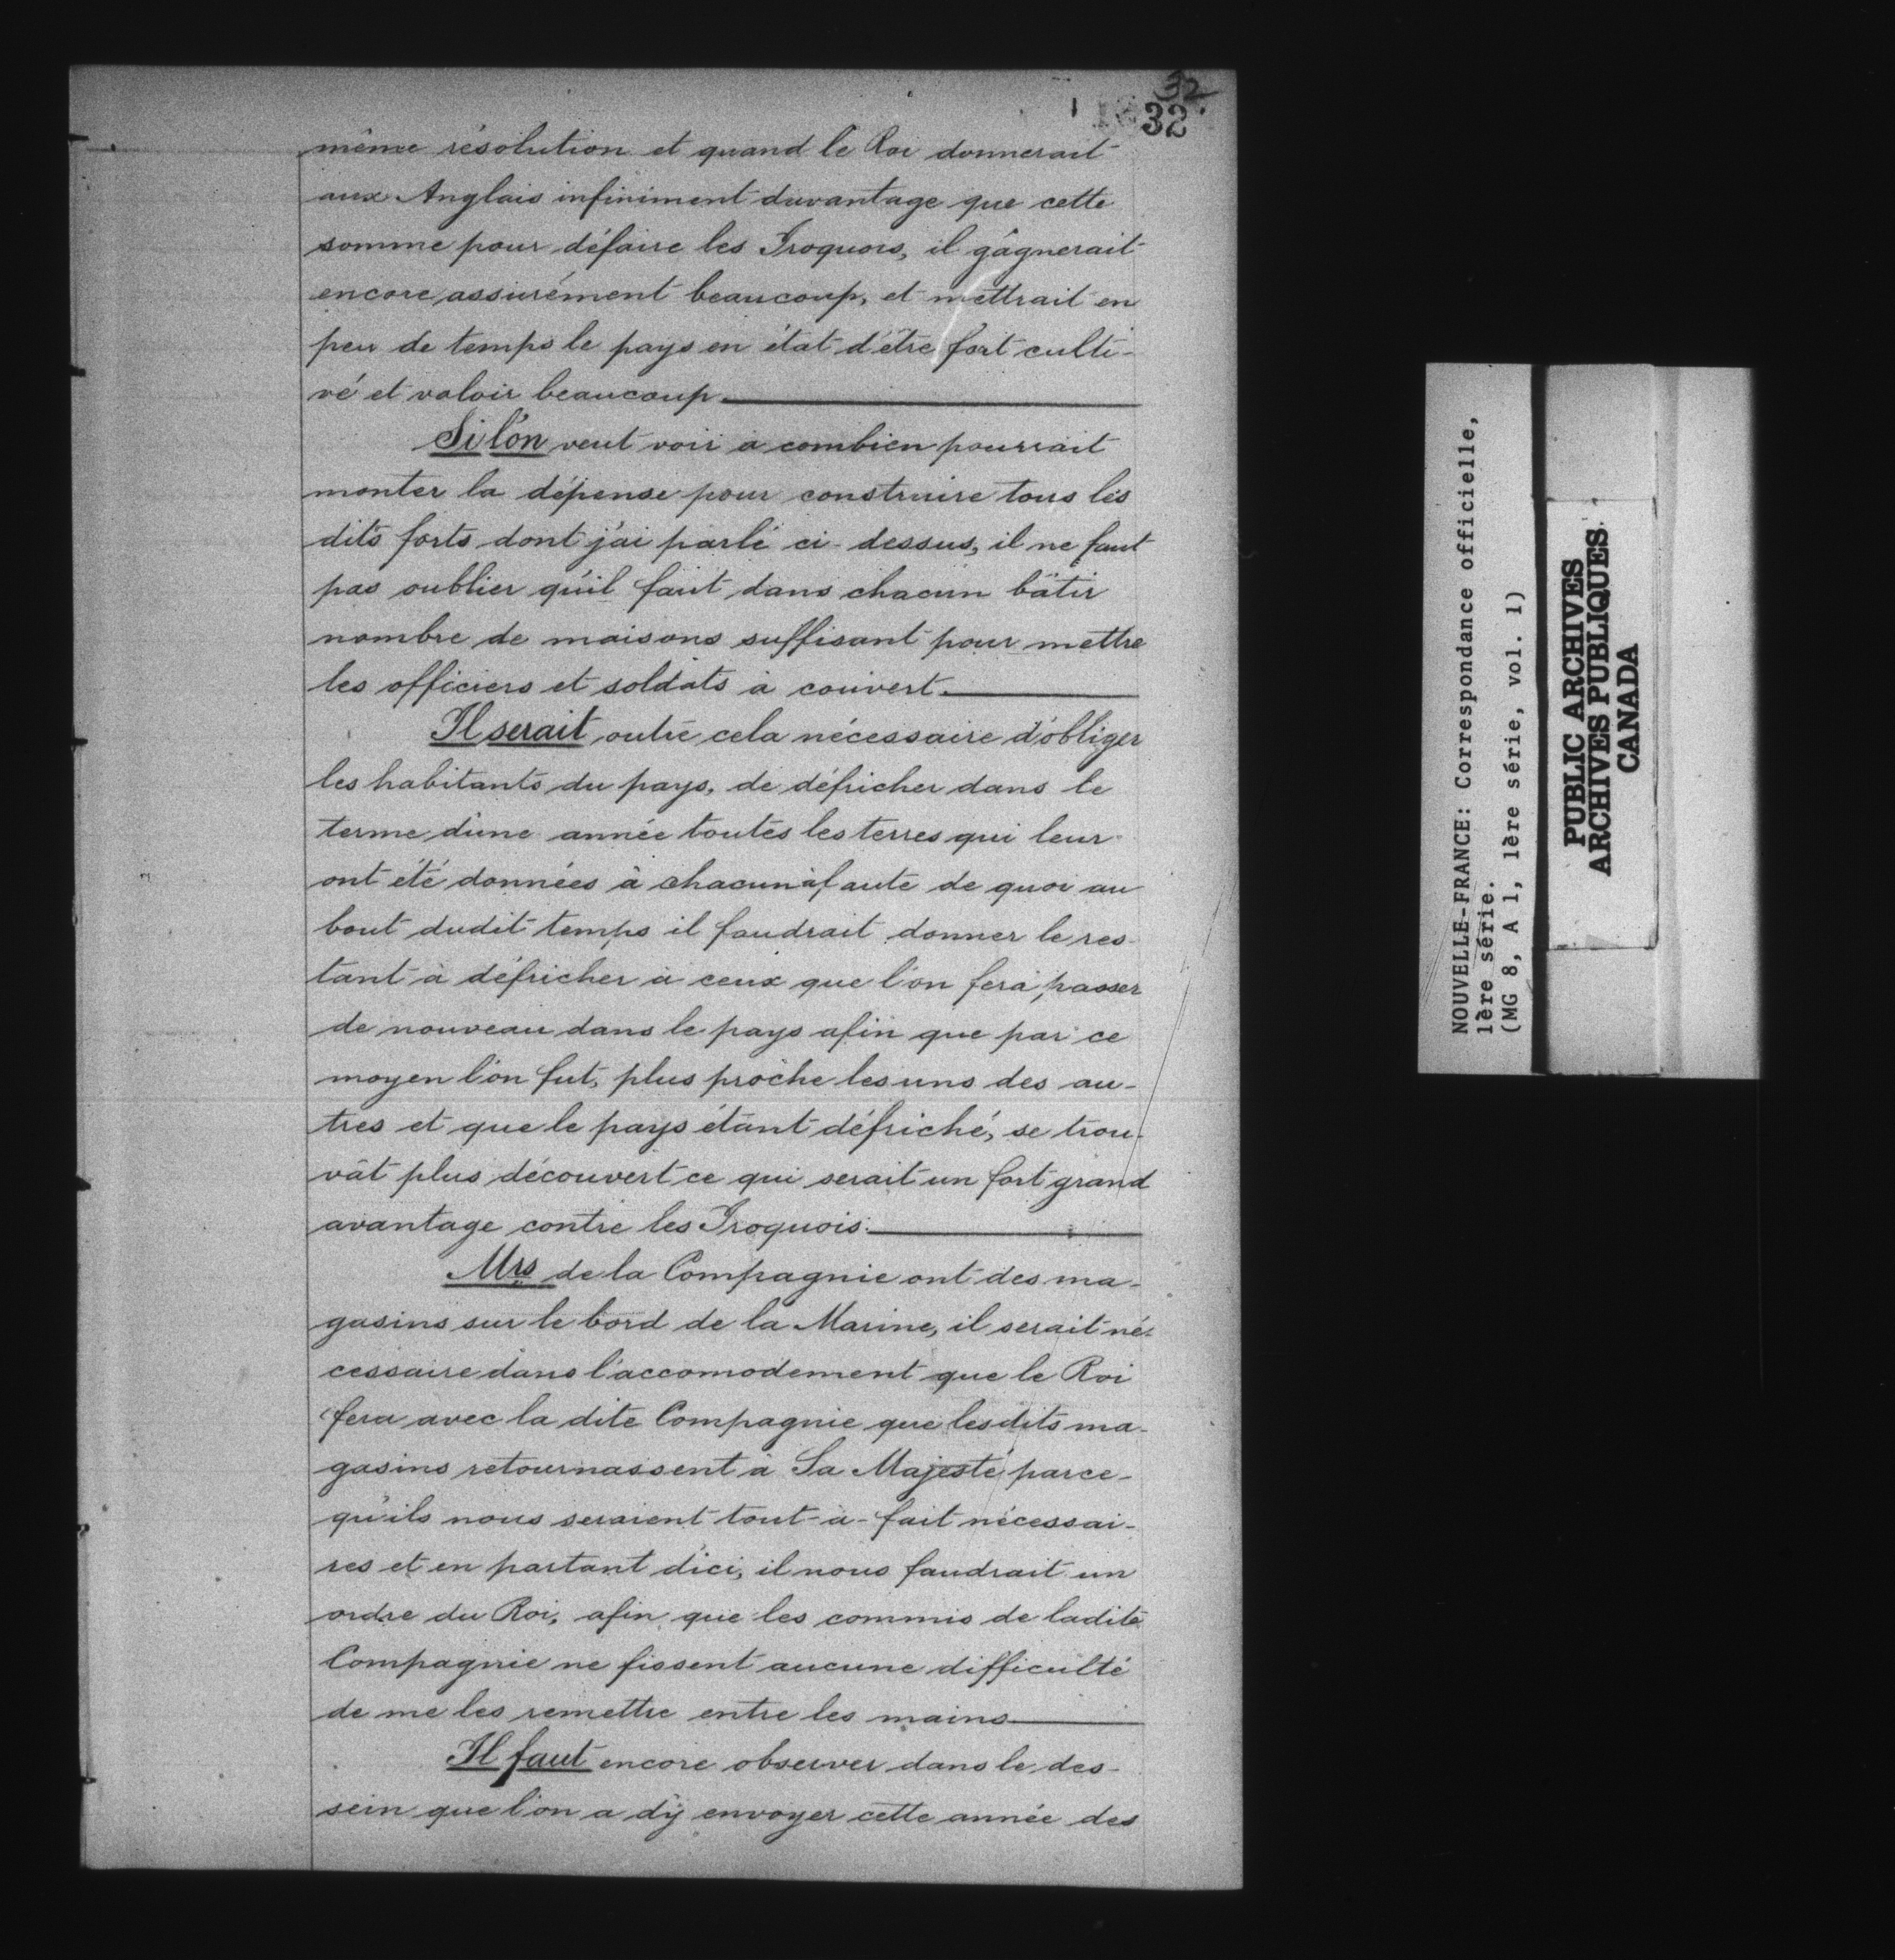 32
32
même résolution et quand le Roi donnerait
aux Anglais infiniment davantage que cette
somme pour défaire les Iroquois, il gâgnerait
encore assurément beaucoup, et mettrait en
peu de temps le pays en état d'être fort culti-
vé et valoir beaucoup.
Si l'on veut voir à combien pourrait
monter la dépense pour construire tous les
dits forts dont j'ai parlé ci-dessus, il ne faut
pas oublier qu'il faut dans chacun bâtir
nombre de maisons suffisant pour mettre
les officiers et soldats à couvert.
Il serait outre cela nécessaire d'obliger
les habitants du pays, de défricher dans le
terme d'une année toutes les terres qui leur
ont été données à chacun à faute de quoi au
bout dudit temps il faudrait donner le res-
tant à défricher à ceux que l'on fera passer
de nouveau dans le pays afin que par ce
moyen l'on fut, plus proche les uns des au-
tres et que le pays étant défriché, se trou-
vât plus découvert ce qui serait un fort grand
avantage contre les Iroquois.
Mrs de la Compagnie ont des ma-
gasins sur le bord de la Marine, il serait né-
cessaire dans l'accomodement que le Roi
fera avec la dite Compagnie que lesdits ma-
gasins retournassent à Sa Majesté parce-
qu'ils nous seraient tout-à-fait nécessai-
res et en partant d'ici, il nous faudrait un
ordre du Roi, afin que les commis de ladite
Compagnie ne fissent aucune difficulté
de me les remettre entre les mains
Il faut encore observer dans le des-
sein que l'on a d'y envoyer cette année des
NOUVELLE-FRANCE: Correspondance officielle,
1ère série.
(MG 8, A 1, 1ère série, vol. 1)
PUBLIC ARCHIVES
ARCHIVES PUBLIQUES
CANADA